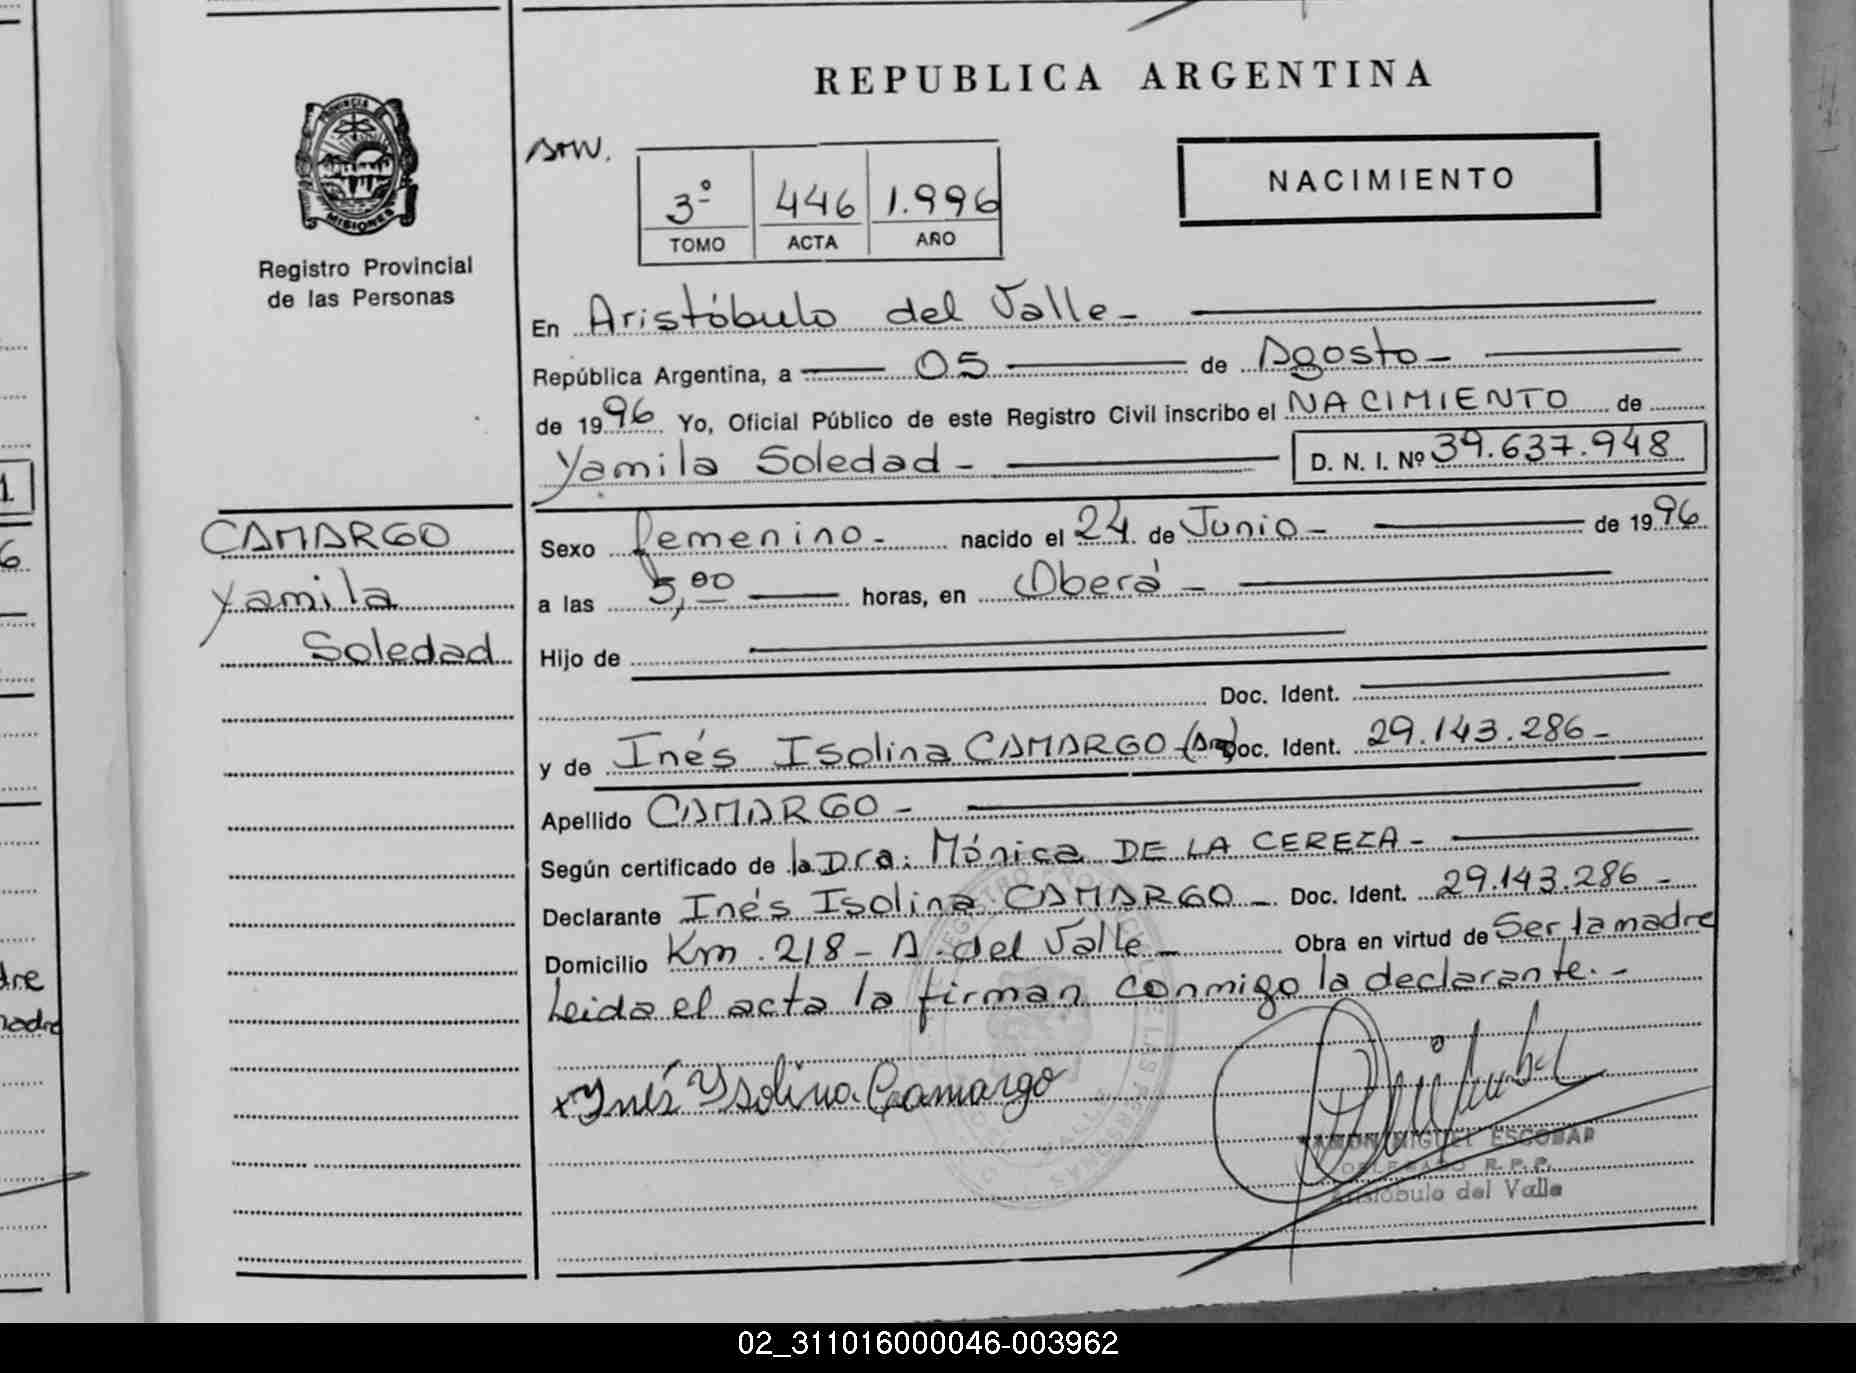 REPUBLICA ARGENTINA
PROVINCIA DE
MISIONES
Registro Provincial
de las Personas
3º 446 1.996
TOMO ACTA AÑO
NACIMIENTO
En Aristóbulo del Valle-
República Argentina, a 05 de Agosto-
de 1996 Yo, Oficial Público de este Registro Civil inscribo el NACIMIENTO de
Yamila Soledad - D. N. I. Nº 39.637.948
CAMARGO
Yamila
Soledad
Sexo femenino- nacido el 24 de Junio- de 1996
a las 5,00 horas, en Oberá-
Hijo de
Doc. Ident.
y de Inés Isolina CAMARGO-(Arg) Doc. Ident. 29.143.286-
Apellido CAMARGO-
Según certificado de la Dra: Mónica DE LA CEREZA-
Declarante Inés Isolina CAMARGO- Doc. Ident. 29.143.286-
Domicilio Km. 218- A. del Valle- Obra en virtud de Ser la madre
Leida el acta la firman conmigo la declarante.-
x Ynés Ysolina Camargo
RAMON MIGUEL ESCOBAR
DELEGADO R.P.P.
Aristóbulo del Valle
02_311016000046-003962